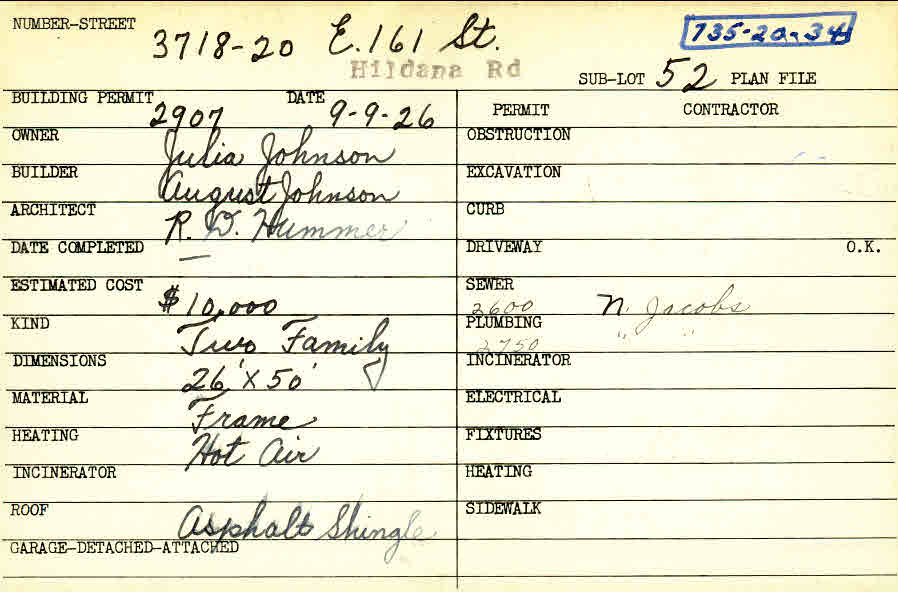 NUMBER-STREET 3718-20 E. 161 St. 735-20-34
Hildana Rd
SUB-LOT 52 PLAN FILE
BUILDING PERMIT 2907 DATE 9-9-26
PERMIT CONTRACTOR
OWNER Julia Johnson
OBSTRUCTION
BUILDER August Johnson
EXCAVATION
ARCHITECT R. D. Hummer
CURB
DATE COMPLETED —
DRIVEWAY O.K.
ESTIMATED COST $10,000
SEWER 2600 N. Jacobs
KIND Two Family
PLUMBING 2750 " "
DIMENSIONS 26' X 50'
INCINERATOR
MATERIAL Frame
ELECTRICAL
HEATING Hot Air
FIXTURES
INCINERATOR
HEATING
ROOF Asphalt Shingle
SIDEWALK
GARAGE-DETACHED-ATTACHED